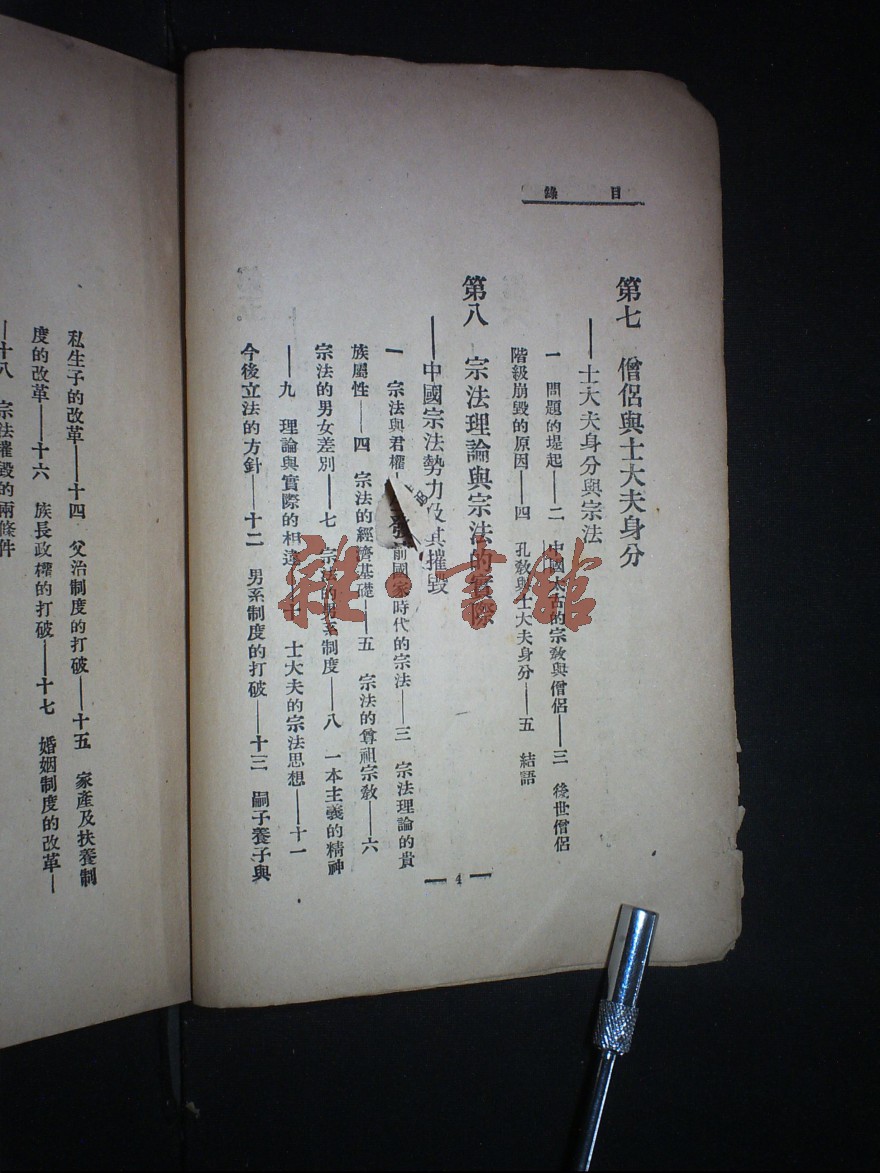 目錄
第七 僧侶與士大夫身分
——士大夫身分與宗法
一 問題的堤起——二 中國太古的宗教與僧侶——三 後世僧侶
階級崩毀的原因——四 孔教與士大夫身分——五 結語
第八 宗法理論與宗法的實際
——中國宗法勢力及其摧毀
一 宗法與君權 前國家時代的宗法——三 宗法理論的貴
族屬性——四 宗法的經濟基礎——五 宗法的尊祖宗教——六
宗法的男女差別——七 宗法的男系制度——八 一本主義的精神
——九 理論與實際的相違 士大夫的宗法思想——十一
今後立法的方針——十二 男系制度的打破——十三 嗣子養子與
— 4 —
私生子的改革——十四 父治制度的打破——十五 家產及扶養制
度的改革——十六 族長政權的打破——十七 婚姻制度的改革—
—十八 宗法摧毀的兩條件
雜·書館